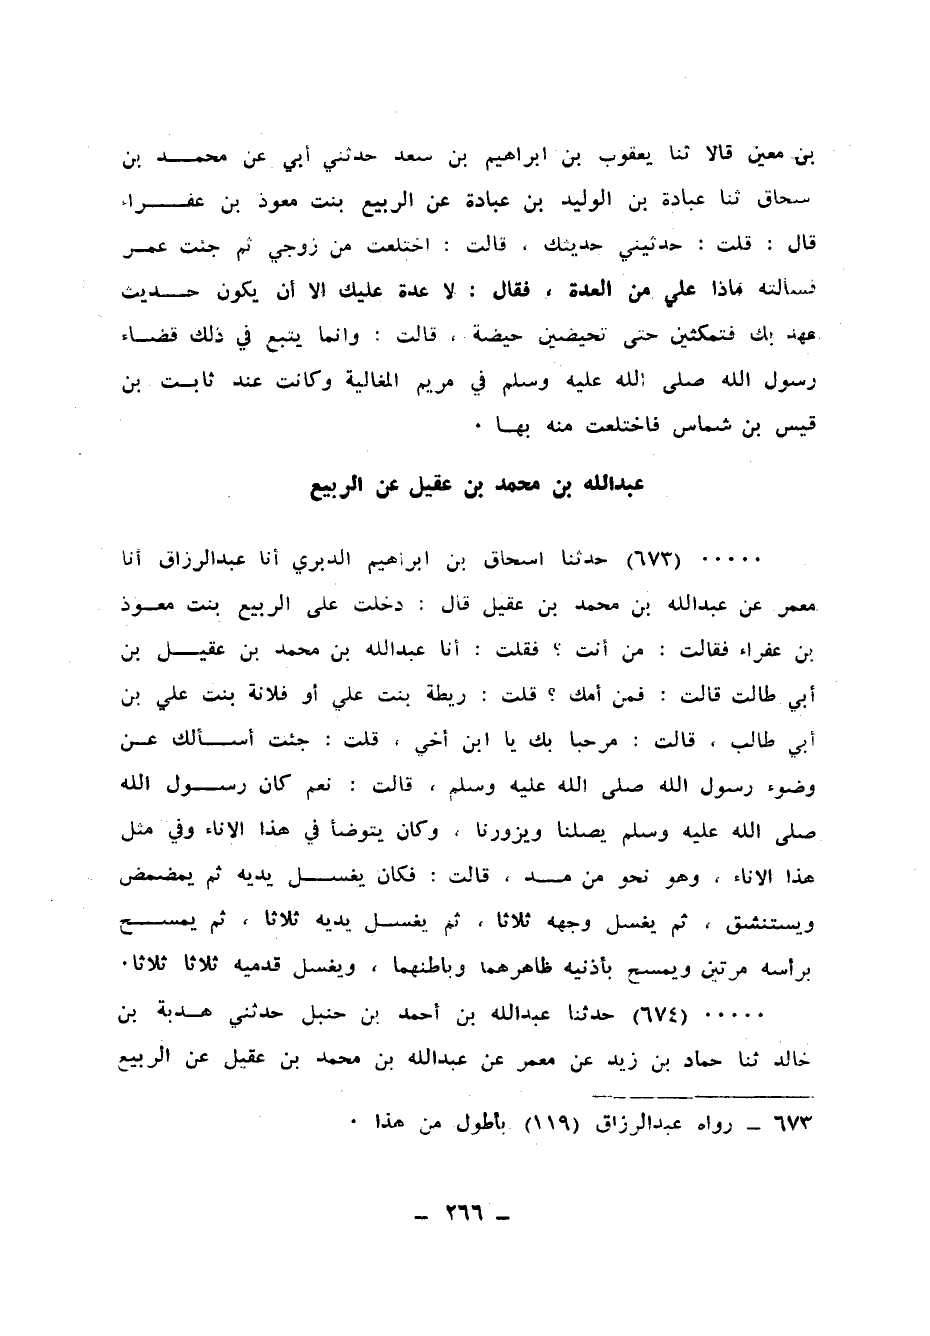 بن معين قالا ثنا يعقوب بن ابراهيم بن سعد حدثني أبي عن محمد بن
سحاق ثنا عبادة بن الوليد بن عبادة عن الربيع بنت معوذ بن عفراء
قال : قلت : حدثيني حديثك ، قالت : اختلعت من زوجي ثم جئت عمر
فسألته ماذا علي من العدة ، فقال : لا عدة عليك الا أن يكون حديث
عهد بك فتمكثين حتى تحيضين حيضة ، قالت : وانما يتبع في ذلك قضاء
رسول الله صلى الله عليه وسلم في مريم المغالية وكانت عند ثابت بن
قيس بن شماس فاختلعت منه بها ٠
عبدالله بن محمد بن عقيل عن الربيع
٠٠٠٠٠ (٦٧٣) حدثنا اسحاق بن ابراهيم الدبري أنا عبدالرزاق أنا
معمر عن عبدالله بن محمد بن عقيل قال : دخلت على الربيع بنت معوذ
بن عفراء فقالت : من أنت ؟ فقلت : أنا عبدالله بن محمد بن عقيل بن
أبي طالت قالت : فمن أمك ؟ قلت : ريطة بنت علي أو فلانة بنت علي بن
أبي طالب ، قالت : مرحبا بك يا ابن أخي ، قلت : جئت أسألك عن
وضوء رسول الله صلى الله عليه وسلم ، قالت : نعم كان رسول الله
صلى الله عليه وسلم يصلنا ويزورنا ، وكان يتوضأ في هذا الاناء وفي مثل
هذا الاناء ، وهو نحو من مد ، قالت : فكان يغسل يديه ثم يمضمض
ويستنشق ، ثم يغسل وجهه ثلاثا ، ثم يغسل يديه ثلاثا ، ثم يمسح
برأسه مرتين ويمسح بأذنيه ظاهرهما وباطنهما ، ويغسل قدميه ثلاثا ثلاثا٠
٠٠٠٠٠ (٦٧٤) حدثنا عبدالله بن أحمد بن حنبل حدثني هدبة بن
خالد ثنا حماد بن زيد عن معمر عن عبدالله بن محمد بن عقيل عن الربيع
٦٧٣ ـ رواه عبدالرزاق (١١٩) بأطول من هذا ٠
ـ ٢٦٦ ـ